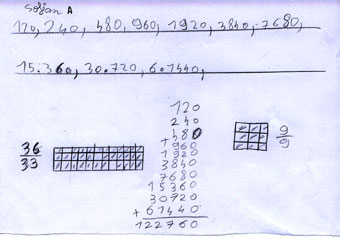 Sofian A
120, 240, 480, 960, 1920, 3840, 7680,
15.360, 30.720, 6.1440,
120
240
480
+ 960
1920
3840
7680
15360
30720
+ 61440
122760
36
33
9
9